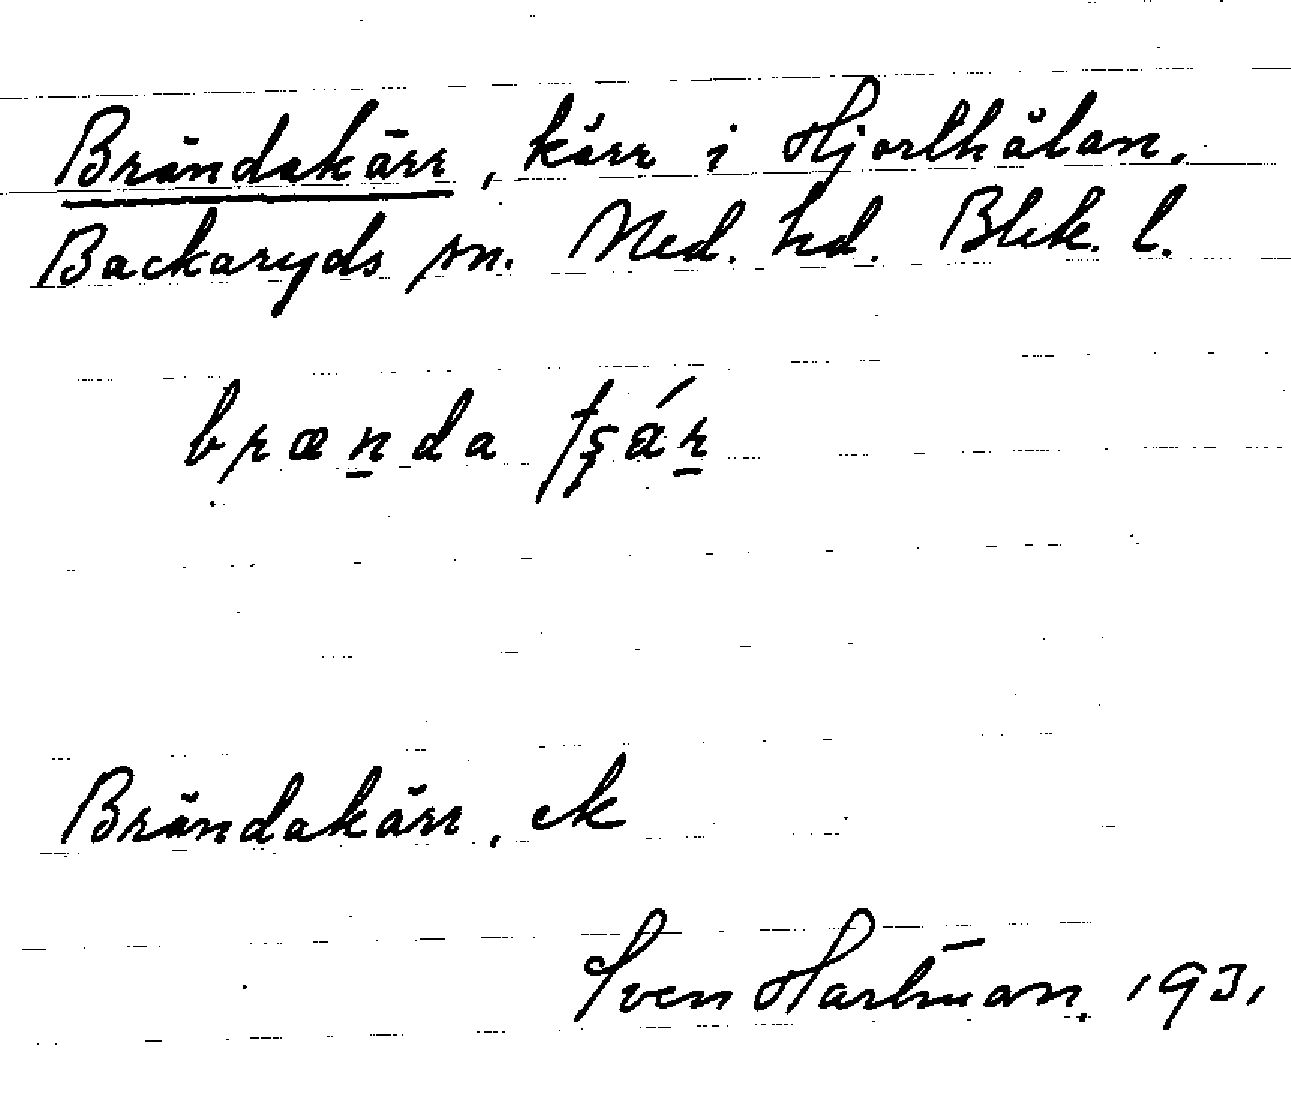 Brändakärr, kärr i Hjorthålan,
Backaryds sn. Med. hd. Blek. l.
brænda tʂár
Brändakärr, ek
Sven Hartman, 1931